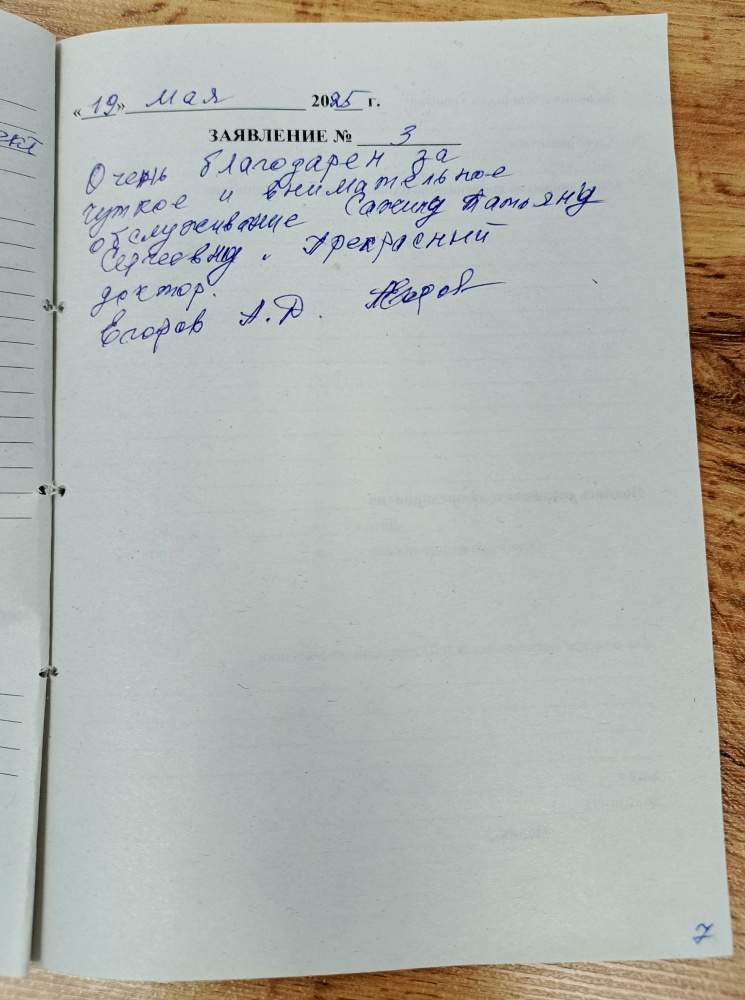 «19» мая 2025 г.
ЗАЯВЛЕНИЕ № 3
Очень благодарен за
чуткое и внимательное
обслуживание Сажину Татьяну
Сергеевну. Прекрасный
доктор.
Егоров А.Д. Егоров
7